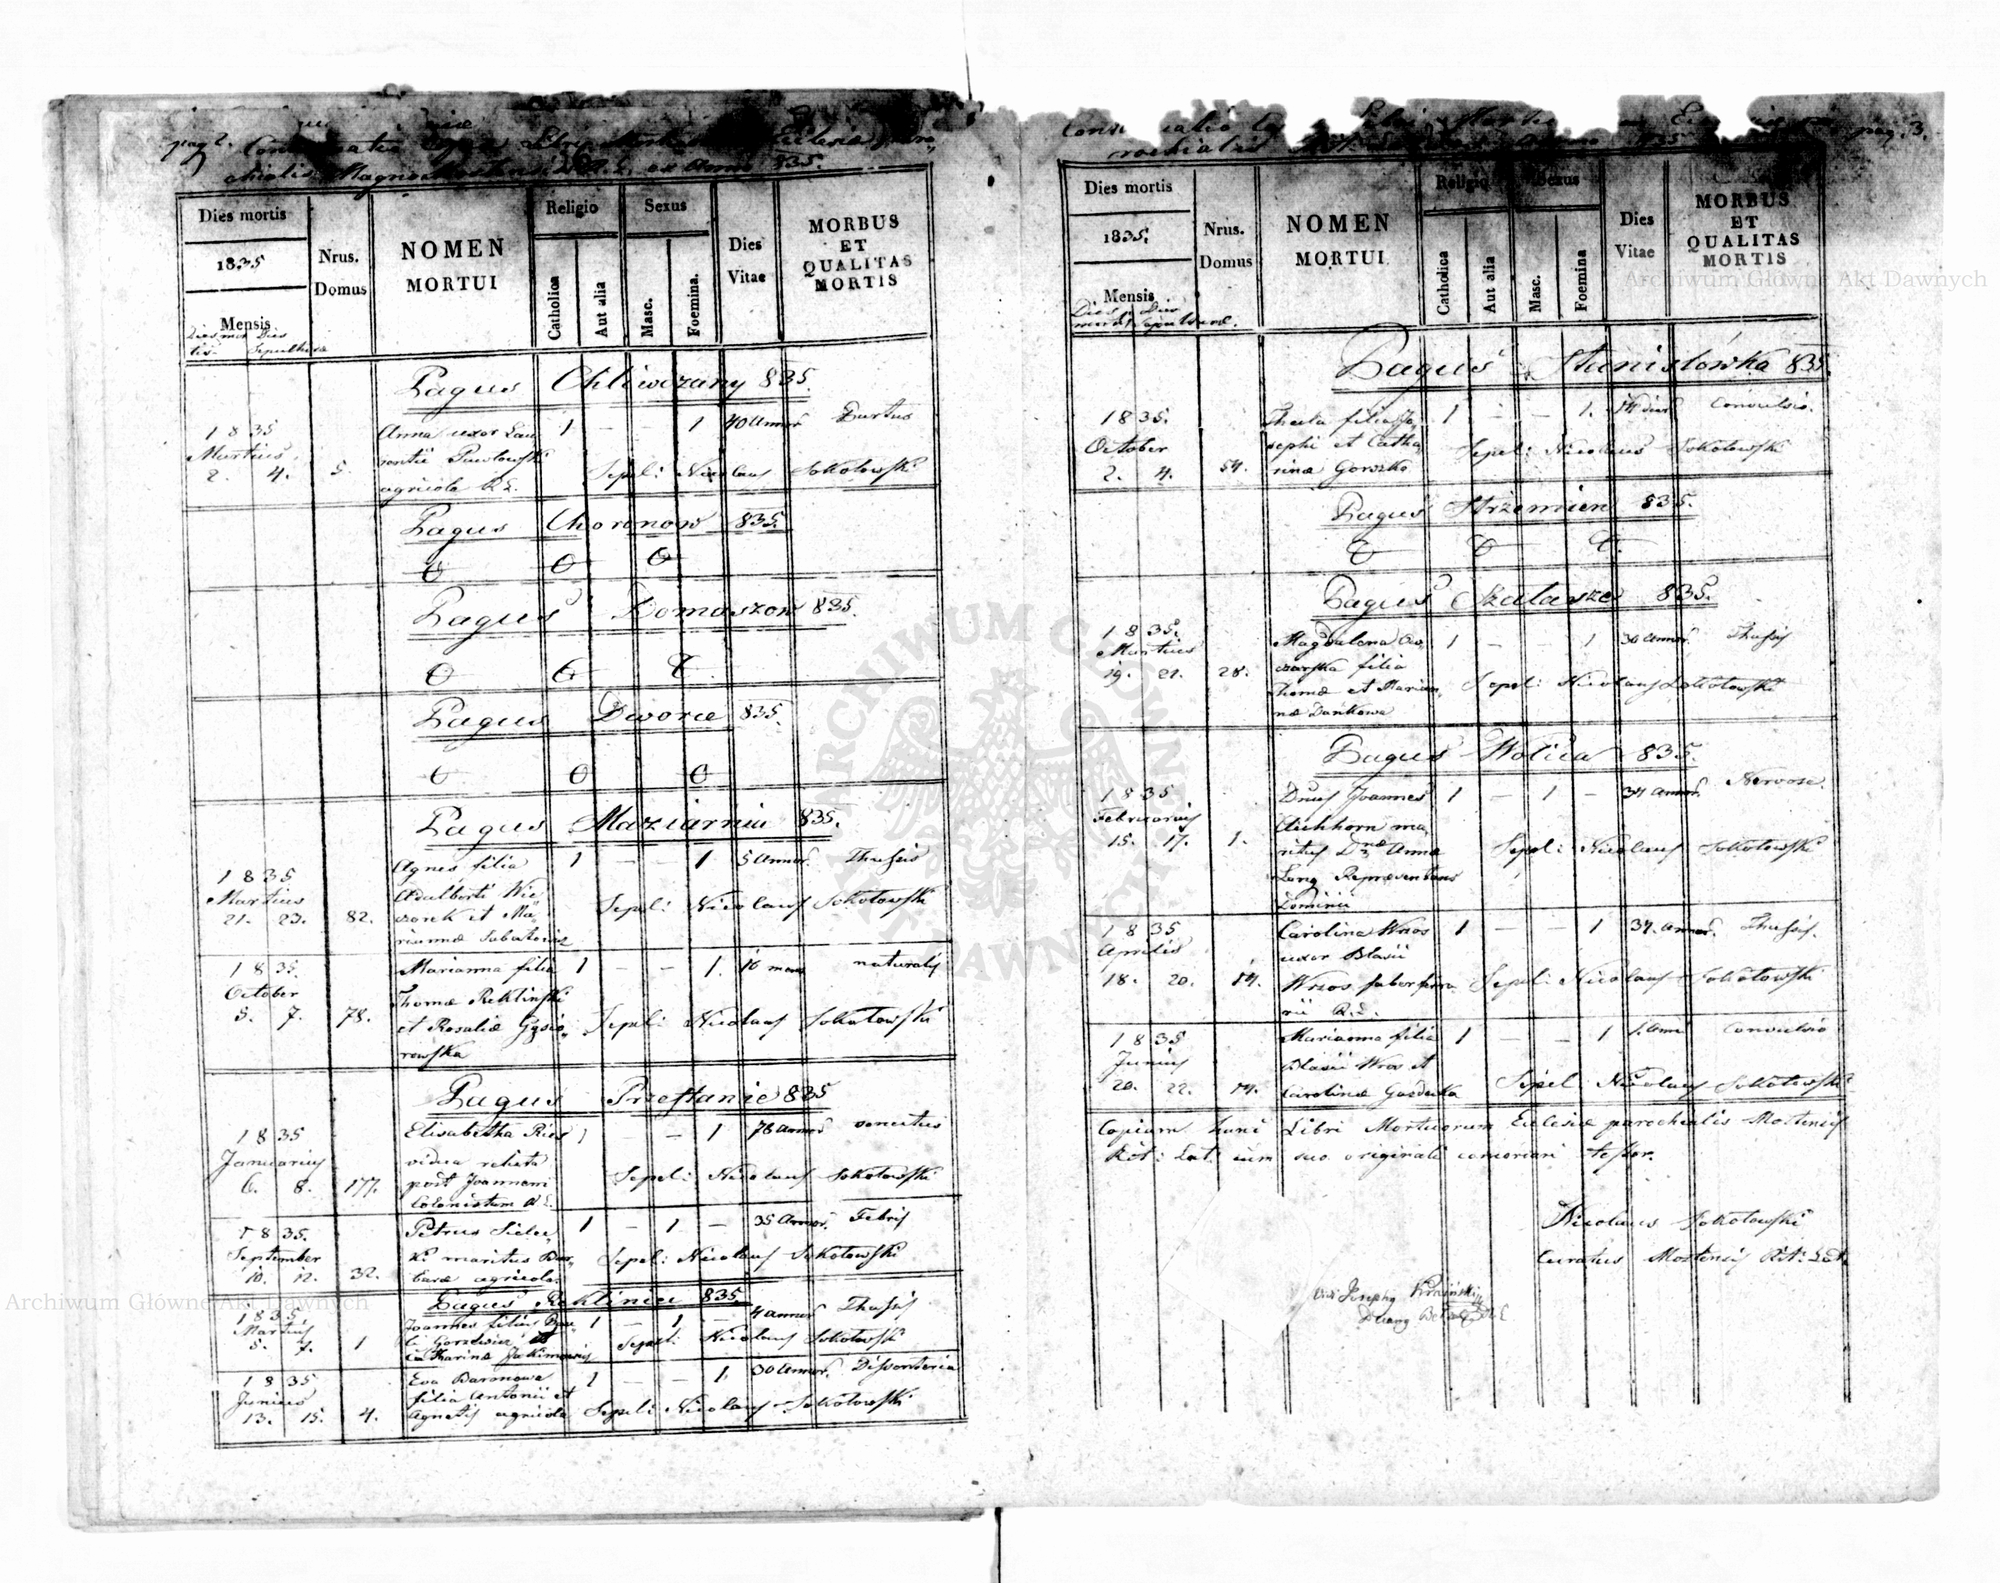 pag 2.
chialis Magno Mostensis R. L. ex Anno 835.
Dies mortis
1835
Mensis
Dies mor Dies
tis Sepulturae
Nrus.
Domus
NOMEN
MORTUI
Religio
Catholica
Aut alia
Sexus
Masc.
Foemina.
Dies
Vitae
MORBUS
ET
QUALITAS
MORTIS
Pagus Chliwczany 835.
1835
Martius
2. 4. 5.
Anna uxor Lau
rentii Pawlowski
agricola R. L.
1 – – 1 40 Annor Partus
Sepel: Nicolaus Sokołowski
Pagus Choronow 835.
O O O
Pagus Domaszow 835.
O O O
Pagus Dworce 835.
O O O
Pagus Maziarnia 835.
1835
Martius
21. 23. 82.
Agnes filia
Adalberti Wie
czorek et Ma
riannae Sabatowicz
1 – – 1 5 Annor. Thussis
Sepel: Nicolaus Sokołowski
1835.
October
5. 7. 78.
Marianna filia
Thomae Reklinski
et Rosaliae Gąsio
rowska
1 – – 1. 10 mens naturalis
Sepel: Nicolaus Sokołowski
Pagus Przystanie 835
1835
Januarius
6. 8. 177.
Elisabetha Ries
vidua relicta
post Joannem
Colonistam R. L.
1 – 1 78 Annor senectus
Sepel: Nicolaus Sokołowski
1835.
September
10. 12. 32.
Petrus Sielec
ki maritus Bar
barae agricola.
1 – 1 – 35 Annor. Febris
Sepel: Nicolaus Sokołowski
Pagus Reklinec 835.
1835.
Martius
5. 7. 1
Joannes filius
Catharinae Jakimowicz
1 – 1 – 4 annor Thussis
Sepel: Nicolaus Sokołowski
1835
Junius
13. 15. 4.
Eva Baranowa
filia Antonii et
Agnetis agricola
1 – – 1. 30 Annor. Dissenteria
Sepel: Nicolaus Sokołowski
pag. 3.
rochialis 835
Dies mortis
1835.
Mensis
Dies Dies
mortis Sepulturae.
Nrus.
Domus
NOMEN
MORTUI
Religio
Catholica
Aut alia
Sexus
Masc.
Foemina
Dies
Vitae
MORBUS
ET
QUALITAS
MORTIS
Pagus Stanisłówka 835.
1835.
October
2. 4. 54.
Thecla filia Jo
sephi et Catha
rinae Gorszka
1 – – 1. 14 dier Convulsio.
Sepel: Nicolaus Sokołowski
Pagus Strzemien 835.
O O O
Pagus Szałasze 835.
1835.
Martius
19. 21. 28.
Magdalena Ow
czarska filia
Thomae et Marian
nae Dankowa
1 – – 1 30 annor. Thussis
Sepel: Nicolaus Sokołowski
Pagus Wolica 835.
1835
Februarius
15. 17. 1.
Dnus Joannes
Aichhorn ma
ritus Dnae Annae
Lang Repraesentans
Dominii
1 – 1 – 34 annor. Nervosa
Sepel: Nicolaus Sokołowski
1835
Aprilis
18. 20. 14.
Carolina Wros
uxor Blasii
Wros faber ferra
rii R. L.
1 – – 1 34. annor. Thussis.
Sepel: Nicolaus Sokołowski
1835
Junius
20. 22. 14.
Marianna filia
Blasii Wros et
Carolinae Gazdecka
1 – – 1 1. Anni Convulsio
Sepel: Nicolaus Sokołowski
Copiam hanc Libri Mortuorum Ecclesiae parochialis Mostensis
Rit: Lat: cum suo originali concordari testor.
Nicolaus Sokołowski
Curatus Mostensis Rit: Lat.
Vidi Josephus
ARCHIWUM GŁÓWNE AKT DAWNYCH
Archiwum Główne Akt Dawnych
Archiwum Główne Akt Dawnych